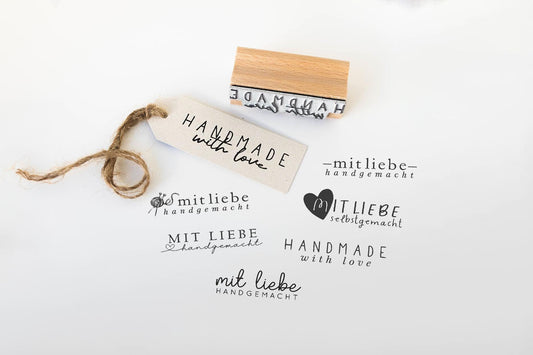 HANDMADE
with love
HANDMADE
with love
mit liebe
handgemacht
mit liebe
handgemacht
MIT LIEBE
selbstgemacht
MIT LIEBE
handgemacht
HANDMADE
with love
mit liebe
HANDGEMACHT